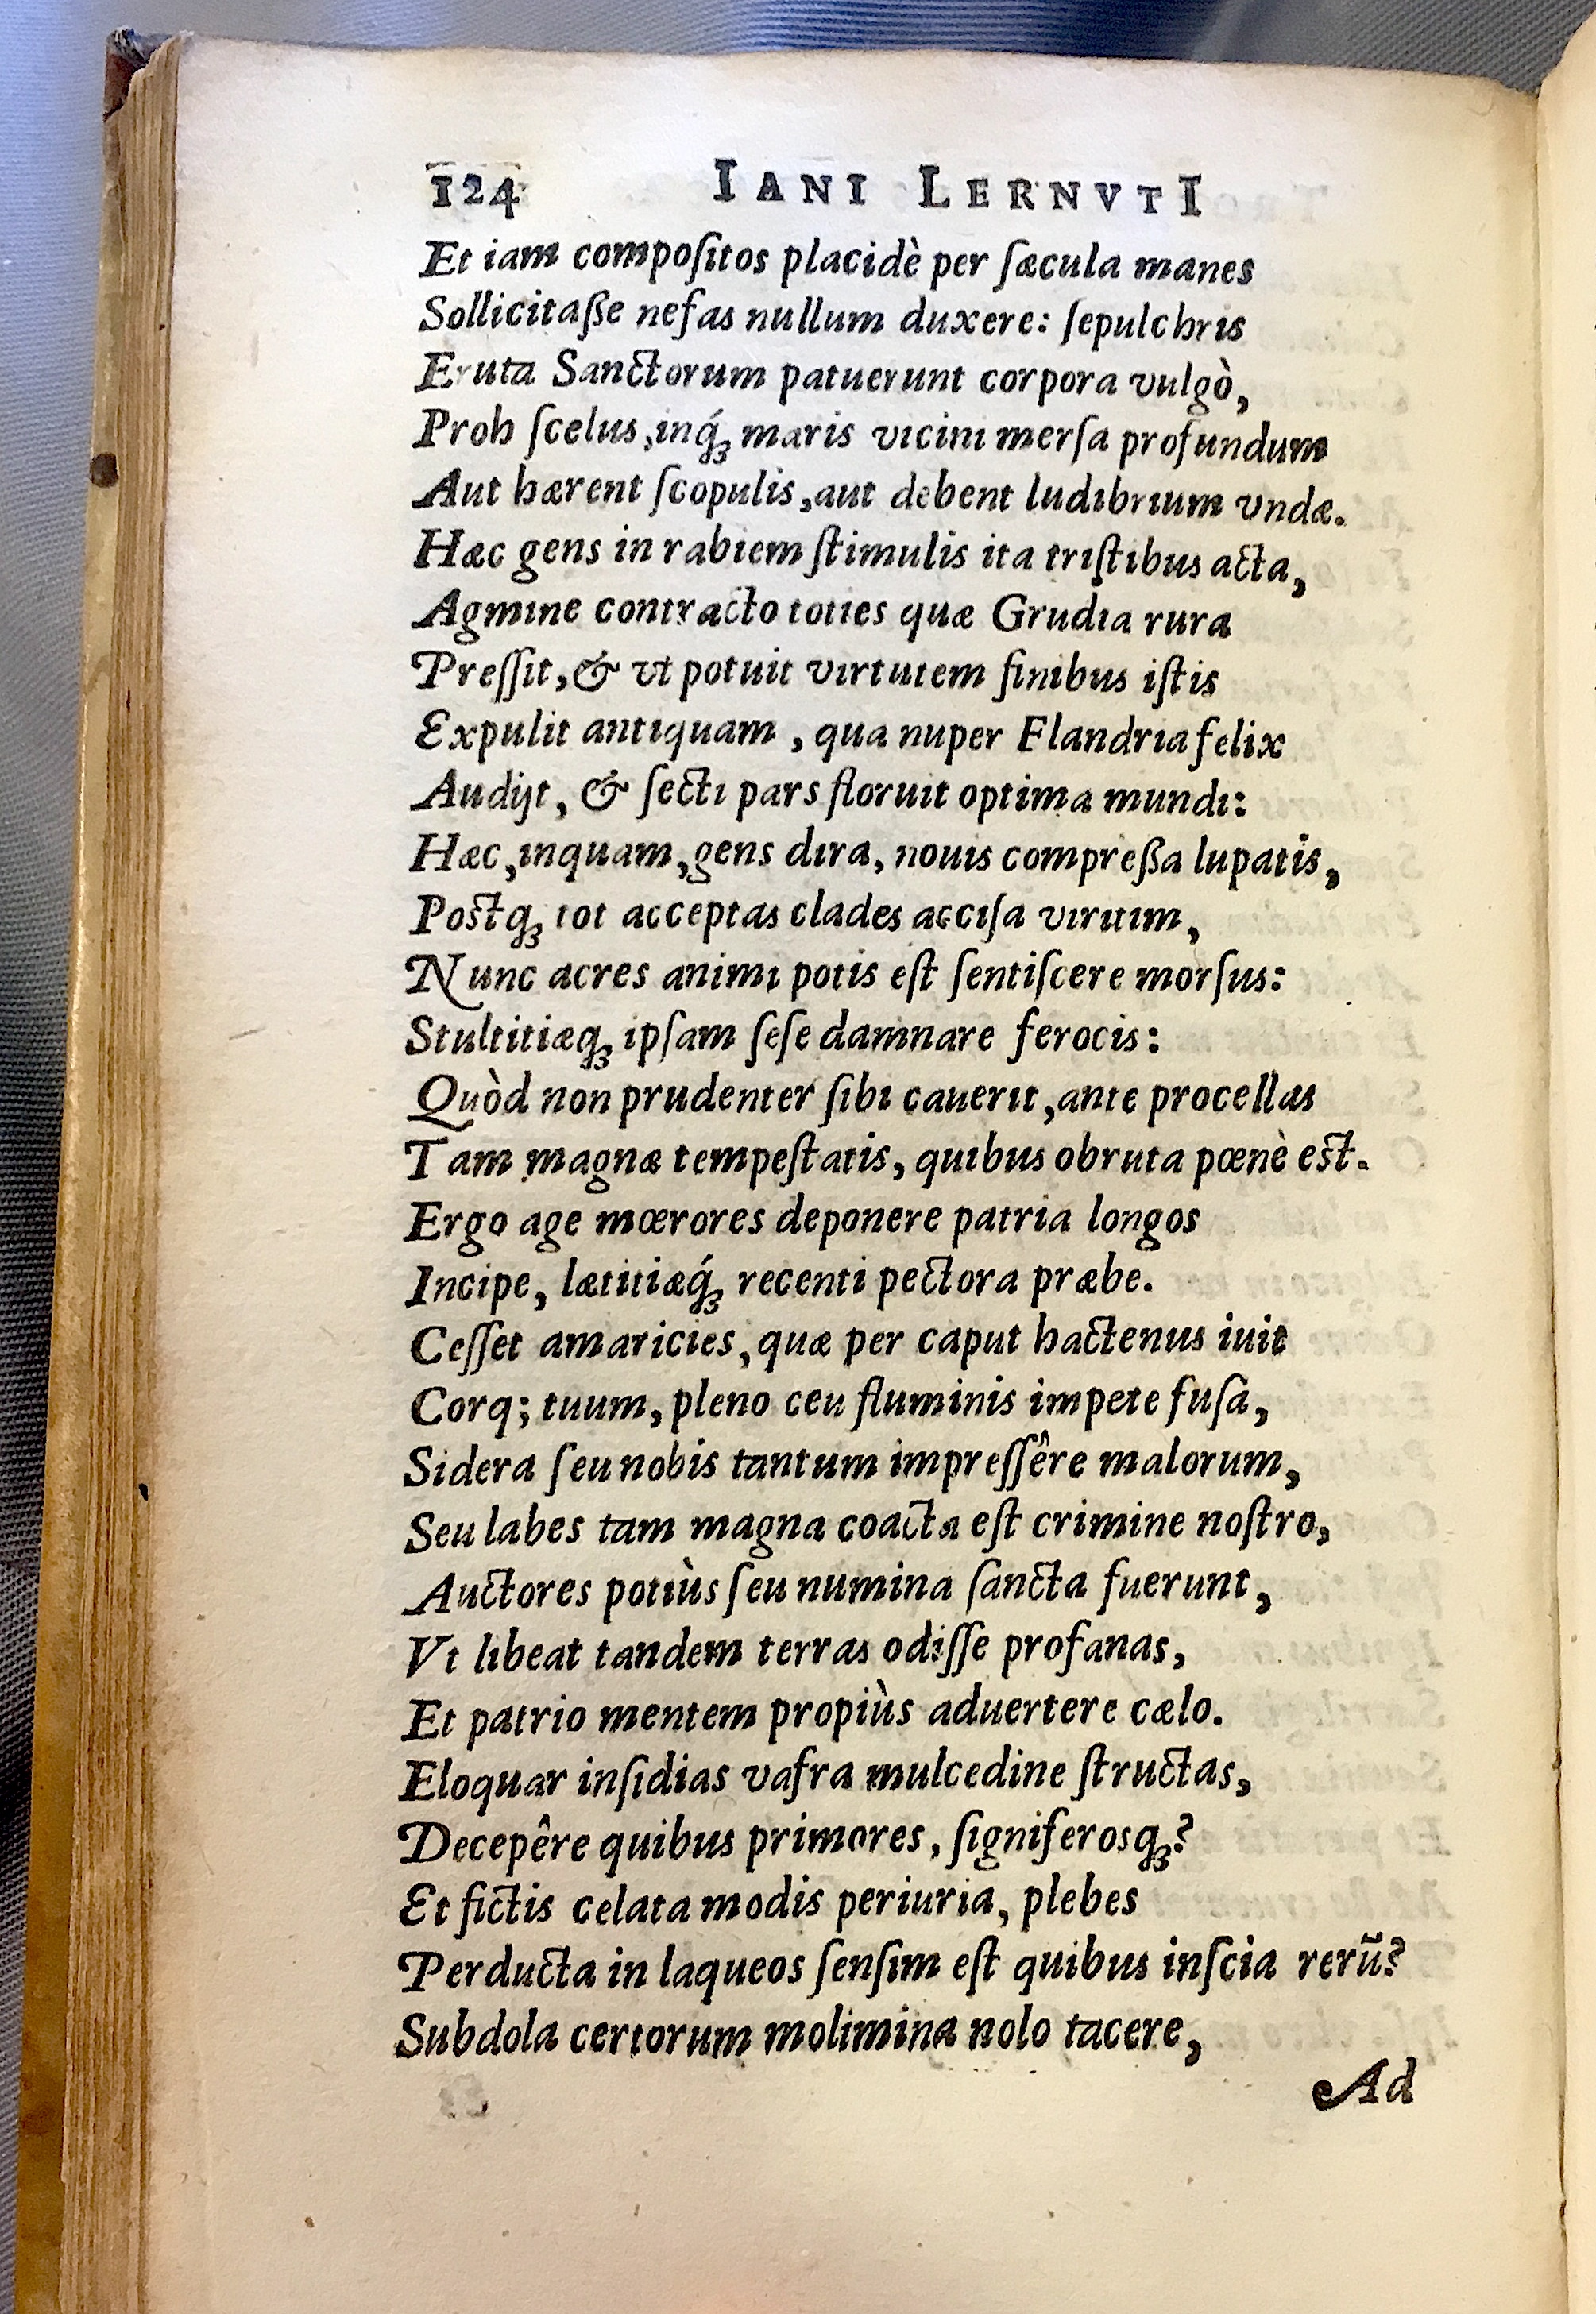 124 IANI LERNVTI
Et iam compoſitos placidè per ſæcula manes
Sollicitaße nefas nullum duxere: ſepulchris
Eruta Sanctorum patuerunt corpora vulgò,
Proh ſcelus, inq́ꝫ maris vicini merſa profundum
Aut hærent ſcopulis, aut debent ludibrium vndæ.
Hæc gens in rabiem ſtimulis ita triſtibus acta,
Agmine contracto toties quæ Grudia rura
Preſſit, & vt potuit virtutem finibus iſtis
Expulit antiquam, qua nuper Flandria felix
Audijt, & ſecti pars floruit optima mundi:
Hæc, inquam, gens dira, nouis compreßa lupatis,
Postqꝫ tot acceptas clades acciſa viritim,
Nunc acres animi potis eſt ſentiſcere morſus:
Stultitiæqꝫ ipſam ſeſe damnare ferocis:
Quòd non prudenter ſibi cauerit, ante procellas
Tam magnæ tempeſtatis, quibus obruta pœnè est.
Ergo age mœrores deponere patria longos
Incipe, lætitiæq́ꝫ recenti pectora præbe.
Ceſſet amaricies, quæ per caput hactenus iuit
Corq; tuum, pleno ceu fluminis impete fuſa,
Sidera ſeu nobis tantum impreſſêre malorum,
Seu labes tam magna coacta eſt crimine noſtro,
Auctores potiùs ſeu numina ſancta fuerunt,
Vt libeat tandem terras odiſſe profanas,
Et patrio mentem propiùs aduertere cælo.
Eloquar inſidias vafra mulcedine ſtructas,
Decepêre quibus primores, ſigniferosqꝫ?
Et fictis celata modis periuria, plebes
Perducta in laqueos ſenſim eſt quibus inſcia rerũ?
Subdola certorum molimina nolo tacere,
Ad